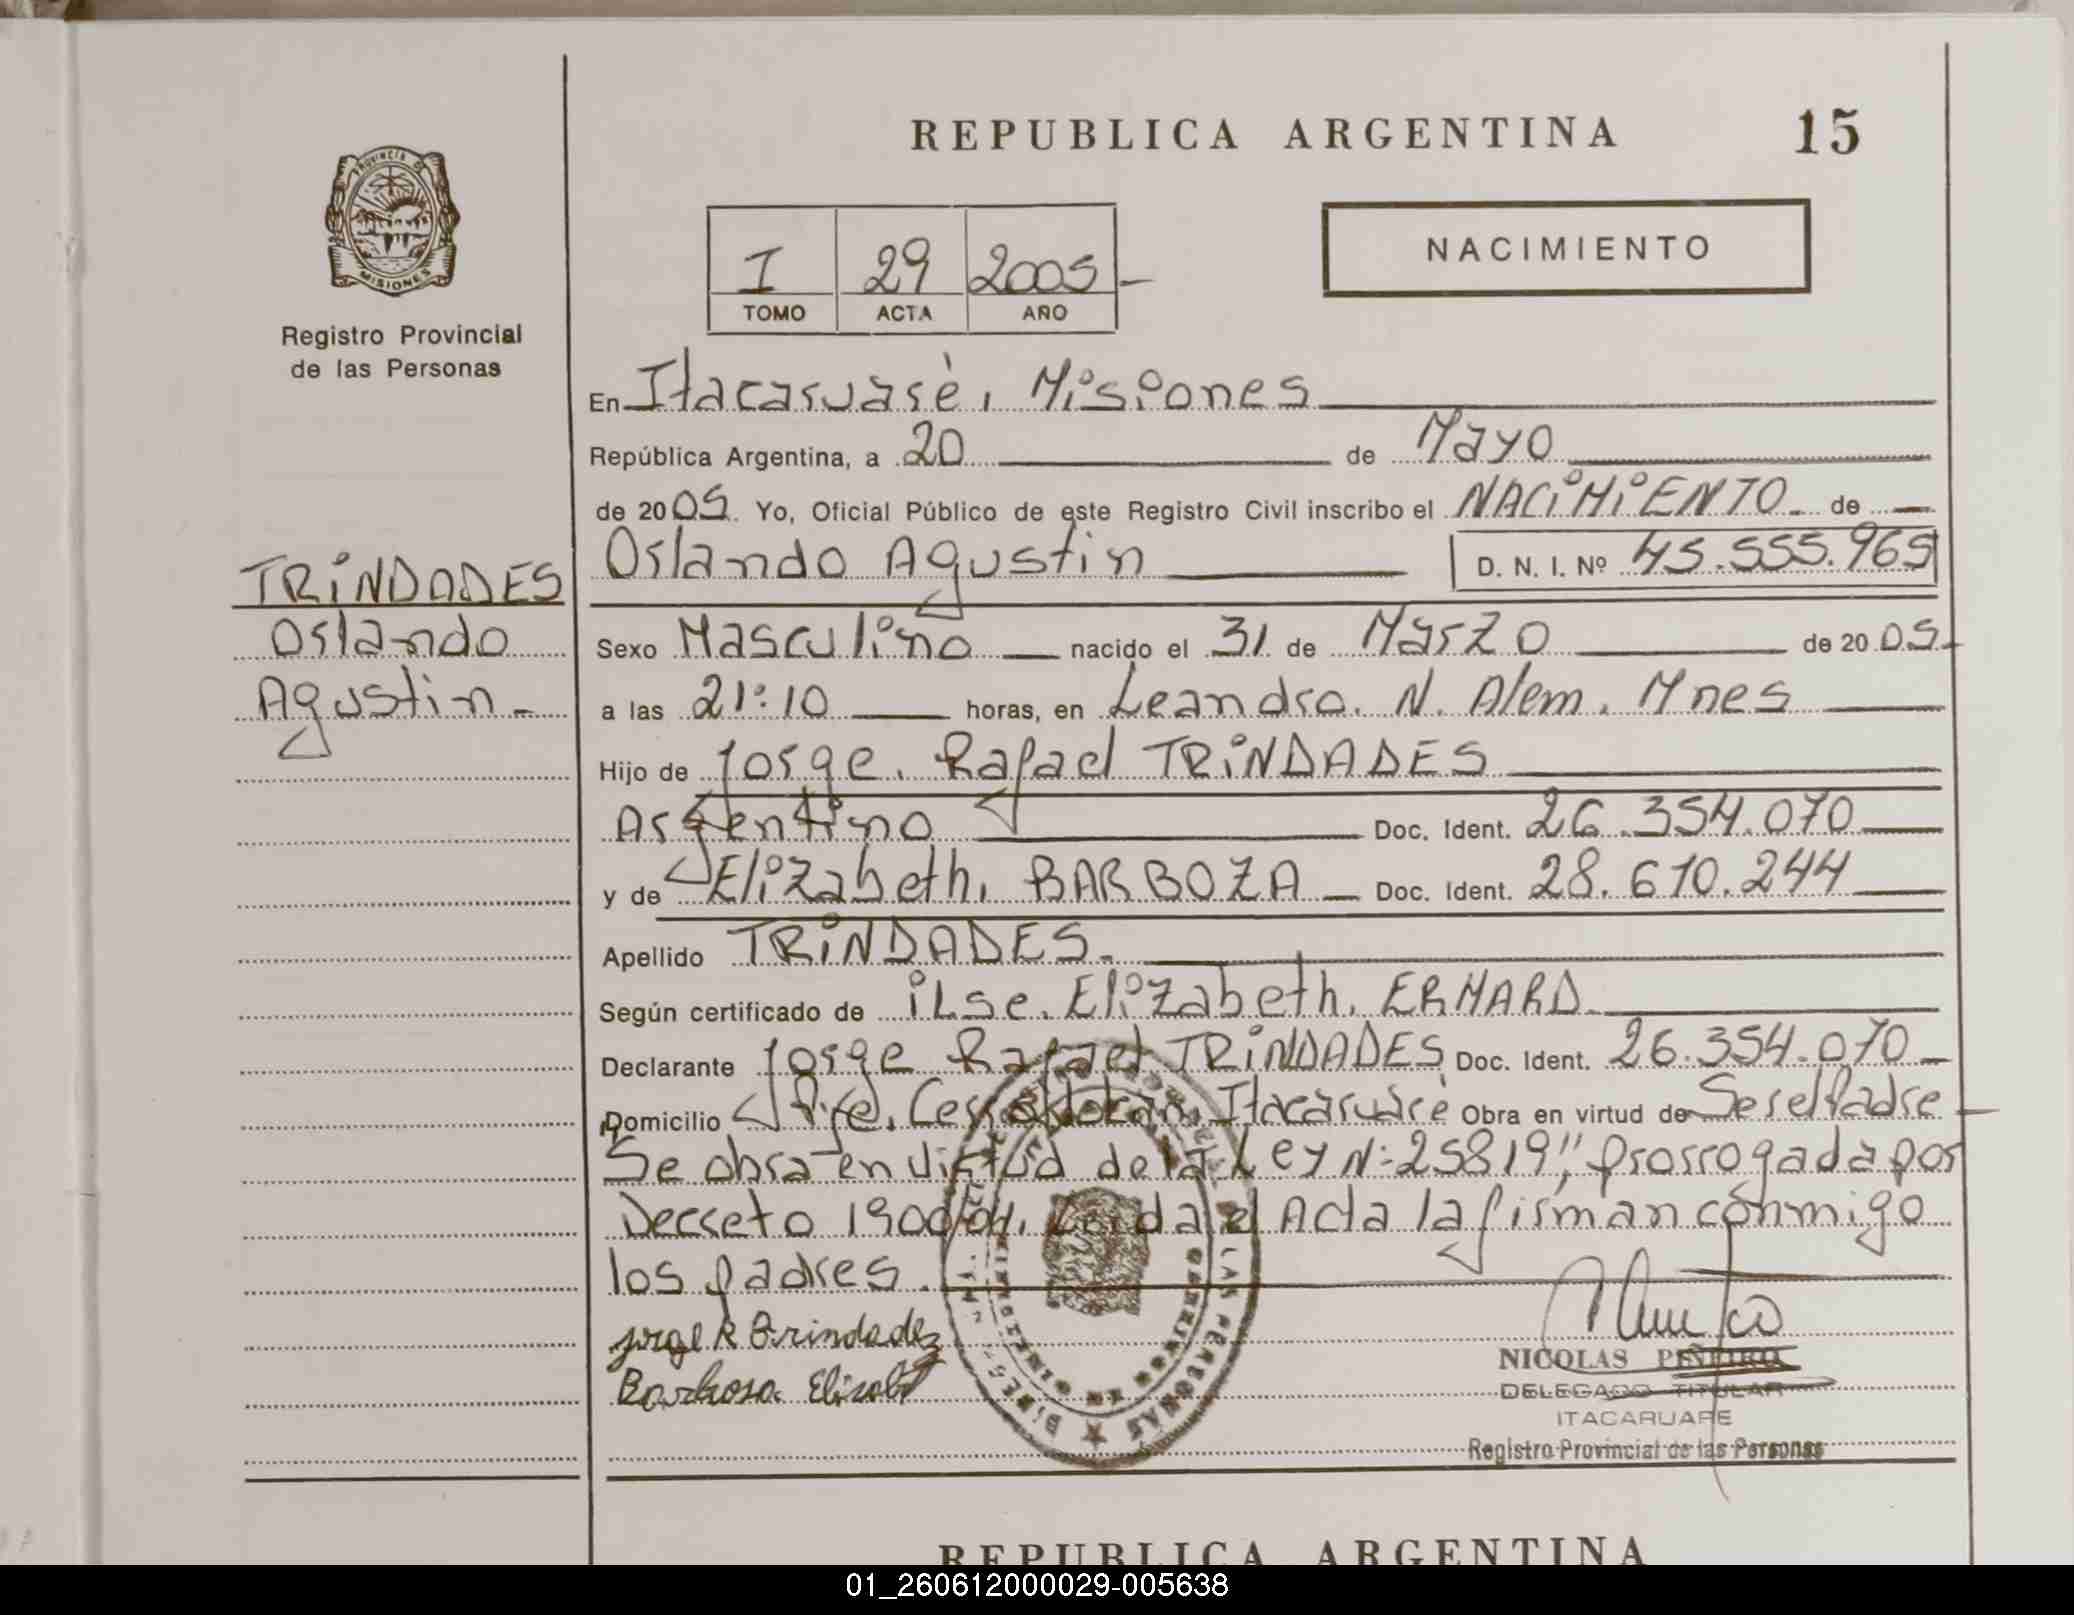 REPUBLICA ARGENTINA
15
PROVINCIA DE
MISIONES
Registro Provincial
de las Personas
I 29 2005 -
TOMO ACTA AÑO
NACIMIENTO
En Itacaruaré, Misiones
República Argentina, a 20 de Mayo
de 2005. Yo, Oficial Público de este Registro Civil inscribo el NACIMIENTO. de
Orlando Agustin D. N. I. Nº 45.555.965
TRINDADES
Orlando
Agustin -
Sexo Masculino nacido el 31 de Marzo de 2005-
a las 21:10 horas, en Leandro. N. Alem. Mnes
Hijo de Jorge. Rafael TRINDADES
Argentino Doc. Ident. 26.354.070
y de Elizabeth. BARBOZA Doc. Ident. 28.610.244
Apellido TRINDADES.
Según certificado de ilse. Elizabeth. ERHARD.
Declarante Jorge Rafael TRINDADES Doc. Ident. 26.354.070
Domicilio Itacaruaré Obra en virtud de Ser el Padre
Se obra en virtud de la Ley N: 25819", prorrogada por
Decreto 1900/04. el Acta la firman conmigo
los padres.
Jorge R Trindades
Barboza Elizabet
NICOLAS PIÑEIRO
DELEGADO TITULAR
ITACARUARE
Registro Provincial de las Personas
REPUBLICA ARGENTINA
01_260612000029-005638